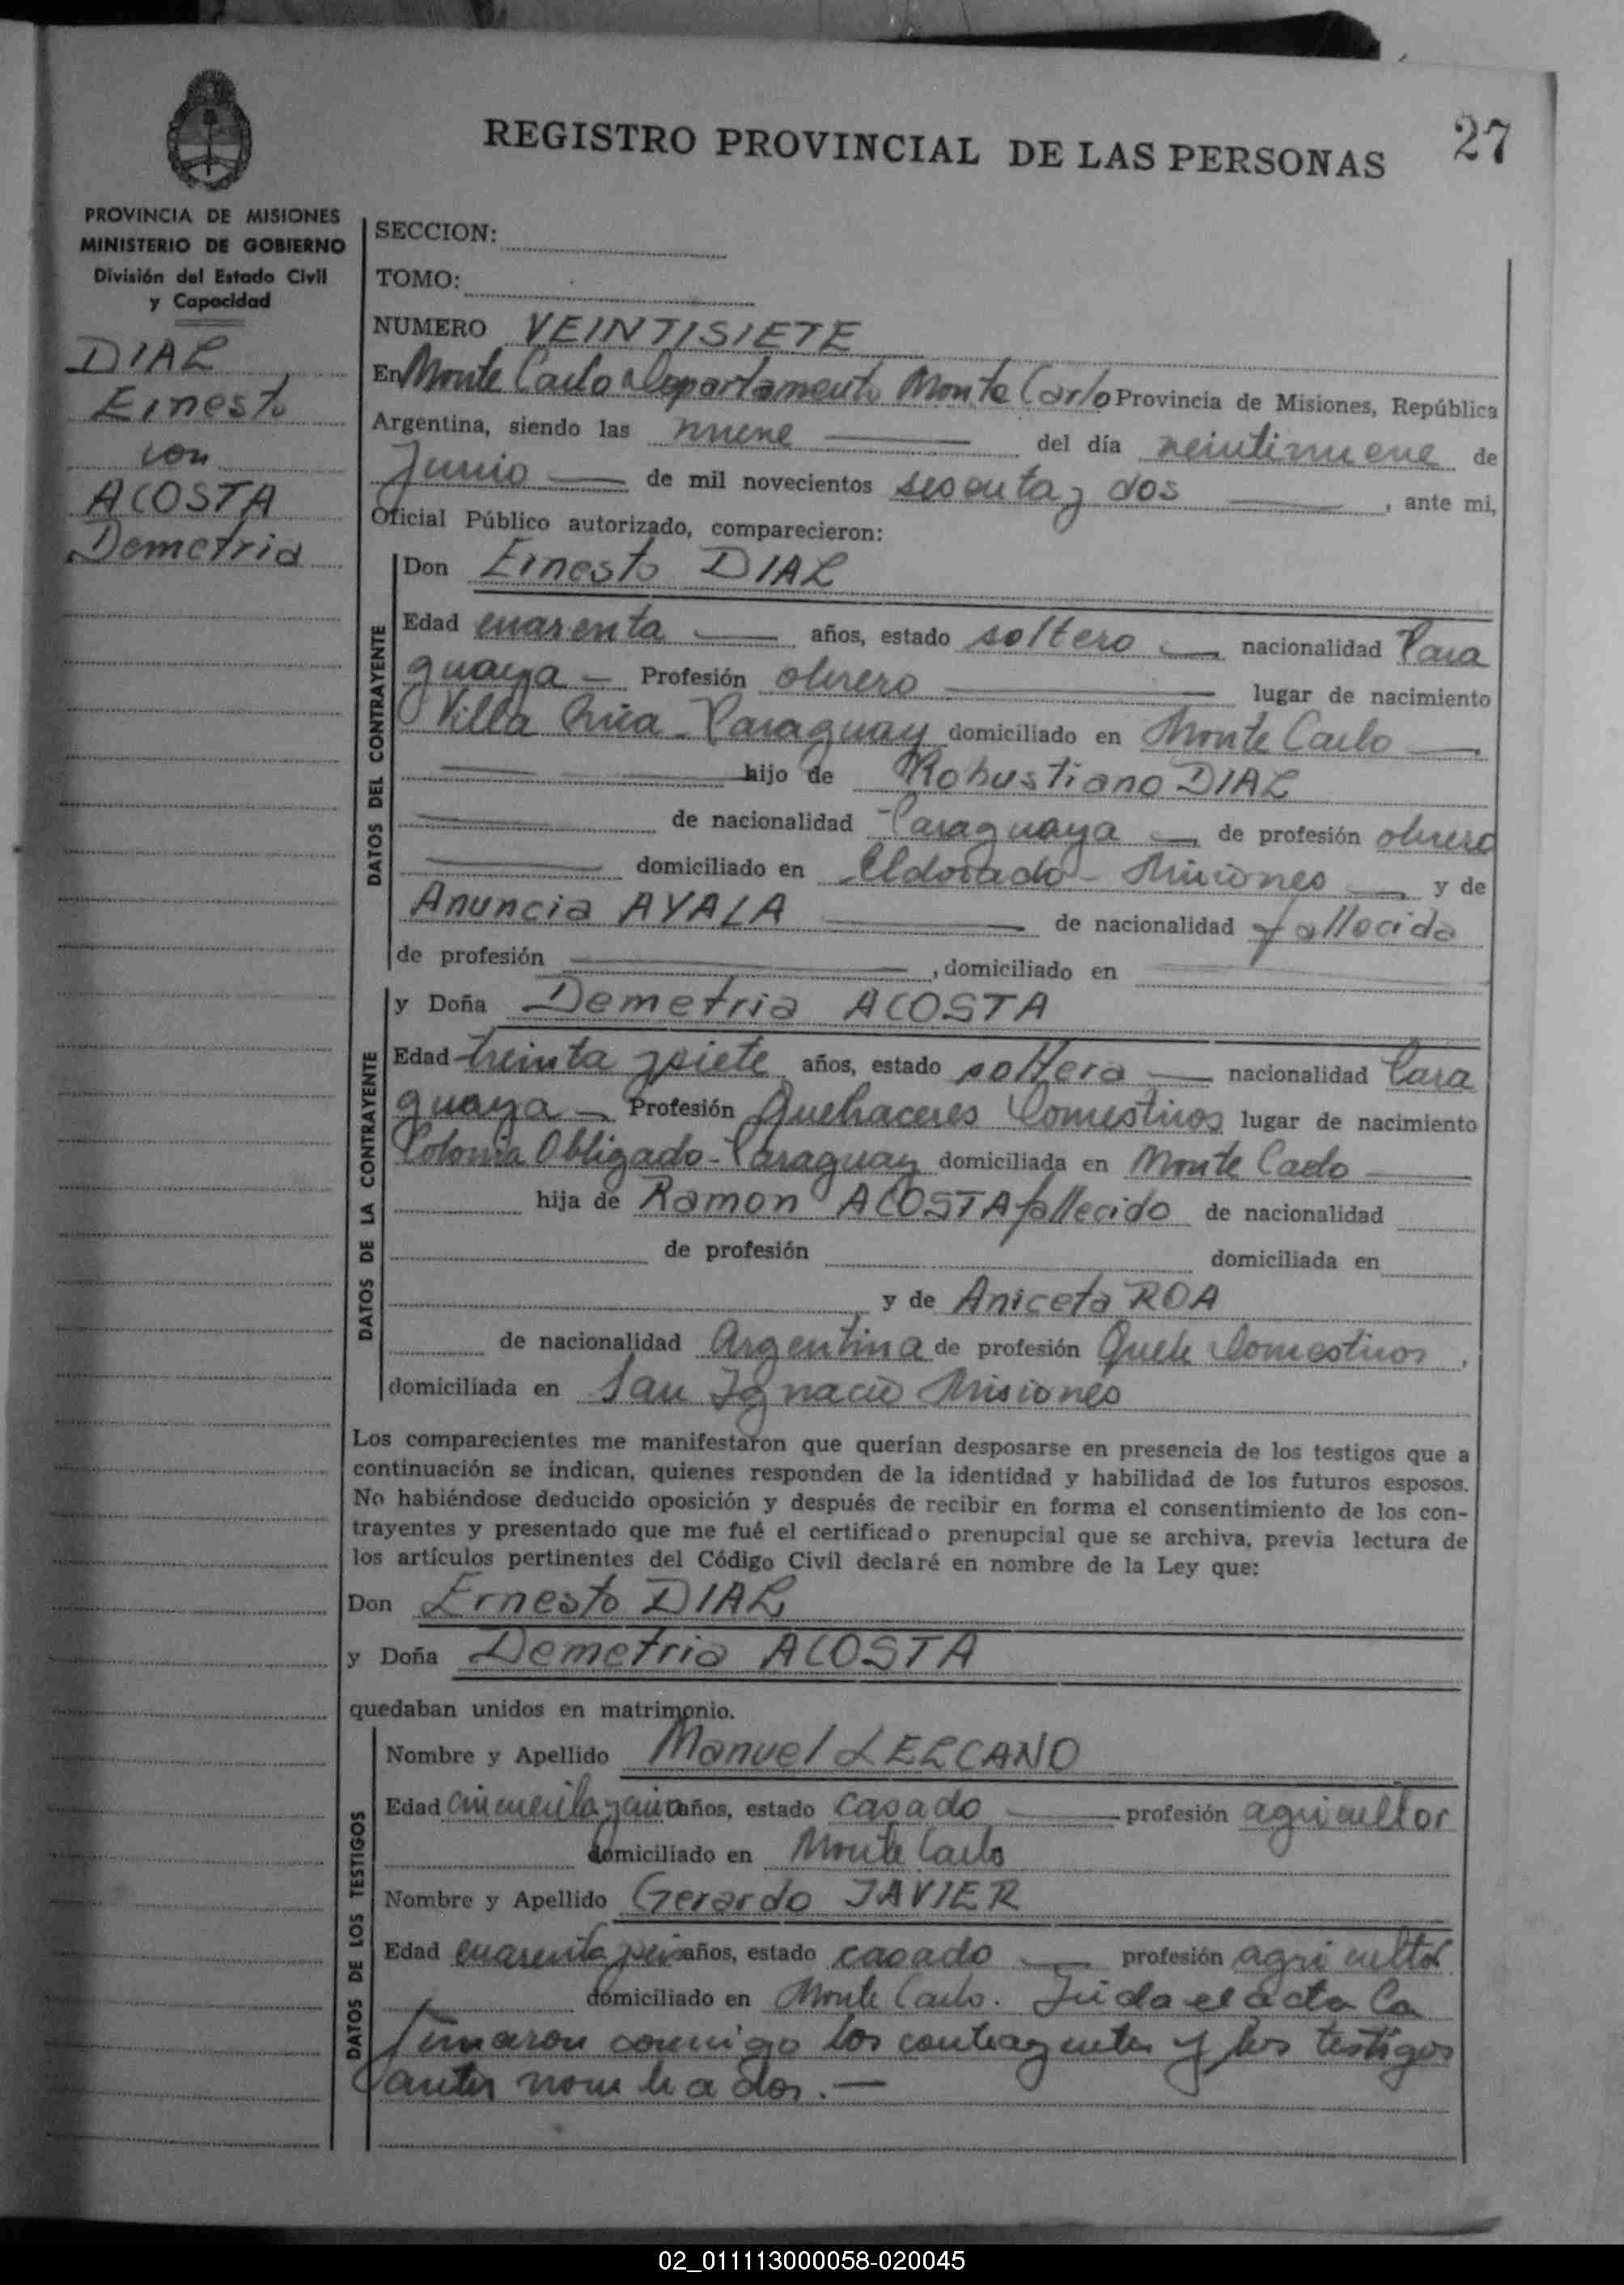 REGISTRO PROVINCIAL DE LAS PERSONAS
27
PROVINCIA DE MISIONES
MINISTERIO DE GOBIERNO
División del Estado Civil
y Capacidad
DIAZ
Ernesto
con
ACOSTA
Demetria
SECCION:
TOMO:
NUMERO VEINTISIETE
En Monte Carlo Departamento Monte Carlo Provincia de Misiones, República
Argentina, siendo las nueve del día veintinueve de
Junio de mil novecientos sesenta y dos, ante mi,
Oficial Público autorizado, comparecieron:
DATOS DEL CONTRAYENTE
Don Ernesto DIAZ
Edad cuarenta años, estado soltero nacionalidad Para
guaya Profesión obrero lugar de nacimiento
Villa Rica - Paraguay domiciliado en Monte Carlo
hijo de Robustiano DIAZ
de nacionalidad Paraguaya de profesión obrero
domiciliado en Eldorado - Misiones y de
Anuncia AYALA de nacionalidad fallecida
de profesión , domiciliado en
DATOS DE LA CONTRAYENTE
y Doña Demetria ACOSTA
Edad treinta y siete años, estado soltera nacionalidad Para
guaya - Profesión Quehaceres Domesticos lugar de nacimiento
Colonia Obligado - Paraguay domiciliada en Monte Carlo
hija de Ramon ACOSTA fallecido de nacionalidad
de profesión domiciliada en
y de Aniceta ROA
de nacionalidad Argentina de profesión Queh Domesticos,
domiciliada en San Ignacio Misiones
Los comparecientes me manifestaron que querían desposarse en presencia de los testigos que a
continuación se indican, quienes responden de la identidad y habilidad de los futuros esposos.
No habiéndose deducido oposición y después de recibir en forma el consentimiento de los con-
trayentes y presentado que me fué el certificado prenupcial que se archiva, previa lectura de
los artículos pertinentes del Código Civil declaré en nombre de la Ley que:
Don Ernesto DIAZ
y Doña Demetria ACOSTA
quedaban unidos en matrimonio.
DATOS DE LOS TESTIGOS
Nombre y Apellido Manuel LEZCANO
Edad cincuenta y cinco años, estado casado profesión agricultor
domiciliado en Monte Carlo
Nombre y Apellido Gerardo JAVIER
Edad cuarenta y seis años, estado casado profesión agricultor
domiciliado en Monte Carlo. Leida el acta la
firmaron conmigo los contrayentes y los testigos
antes nombrados.—
02_011113000058-020045